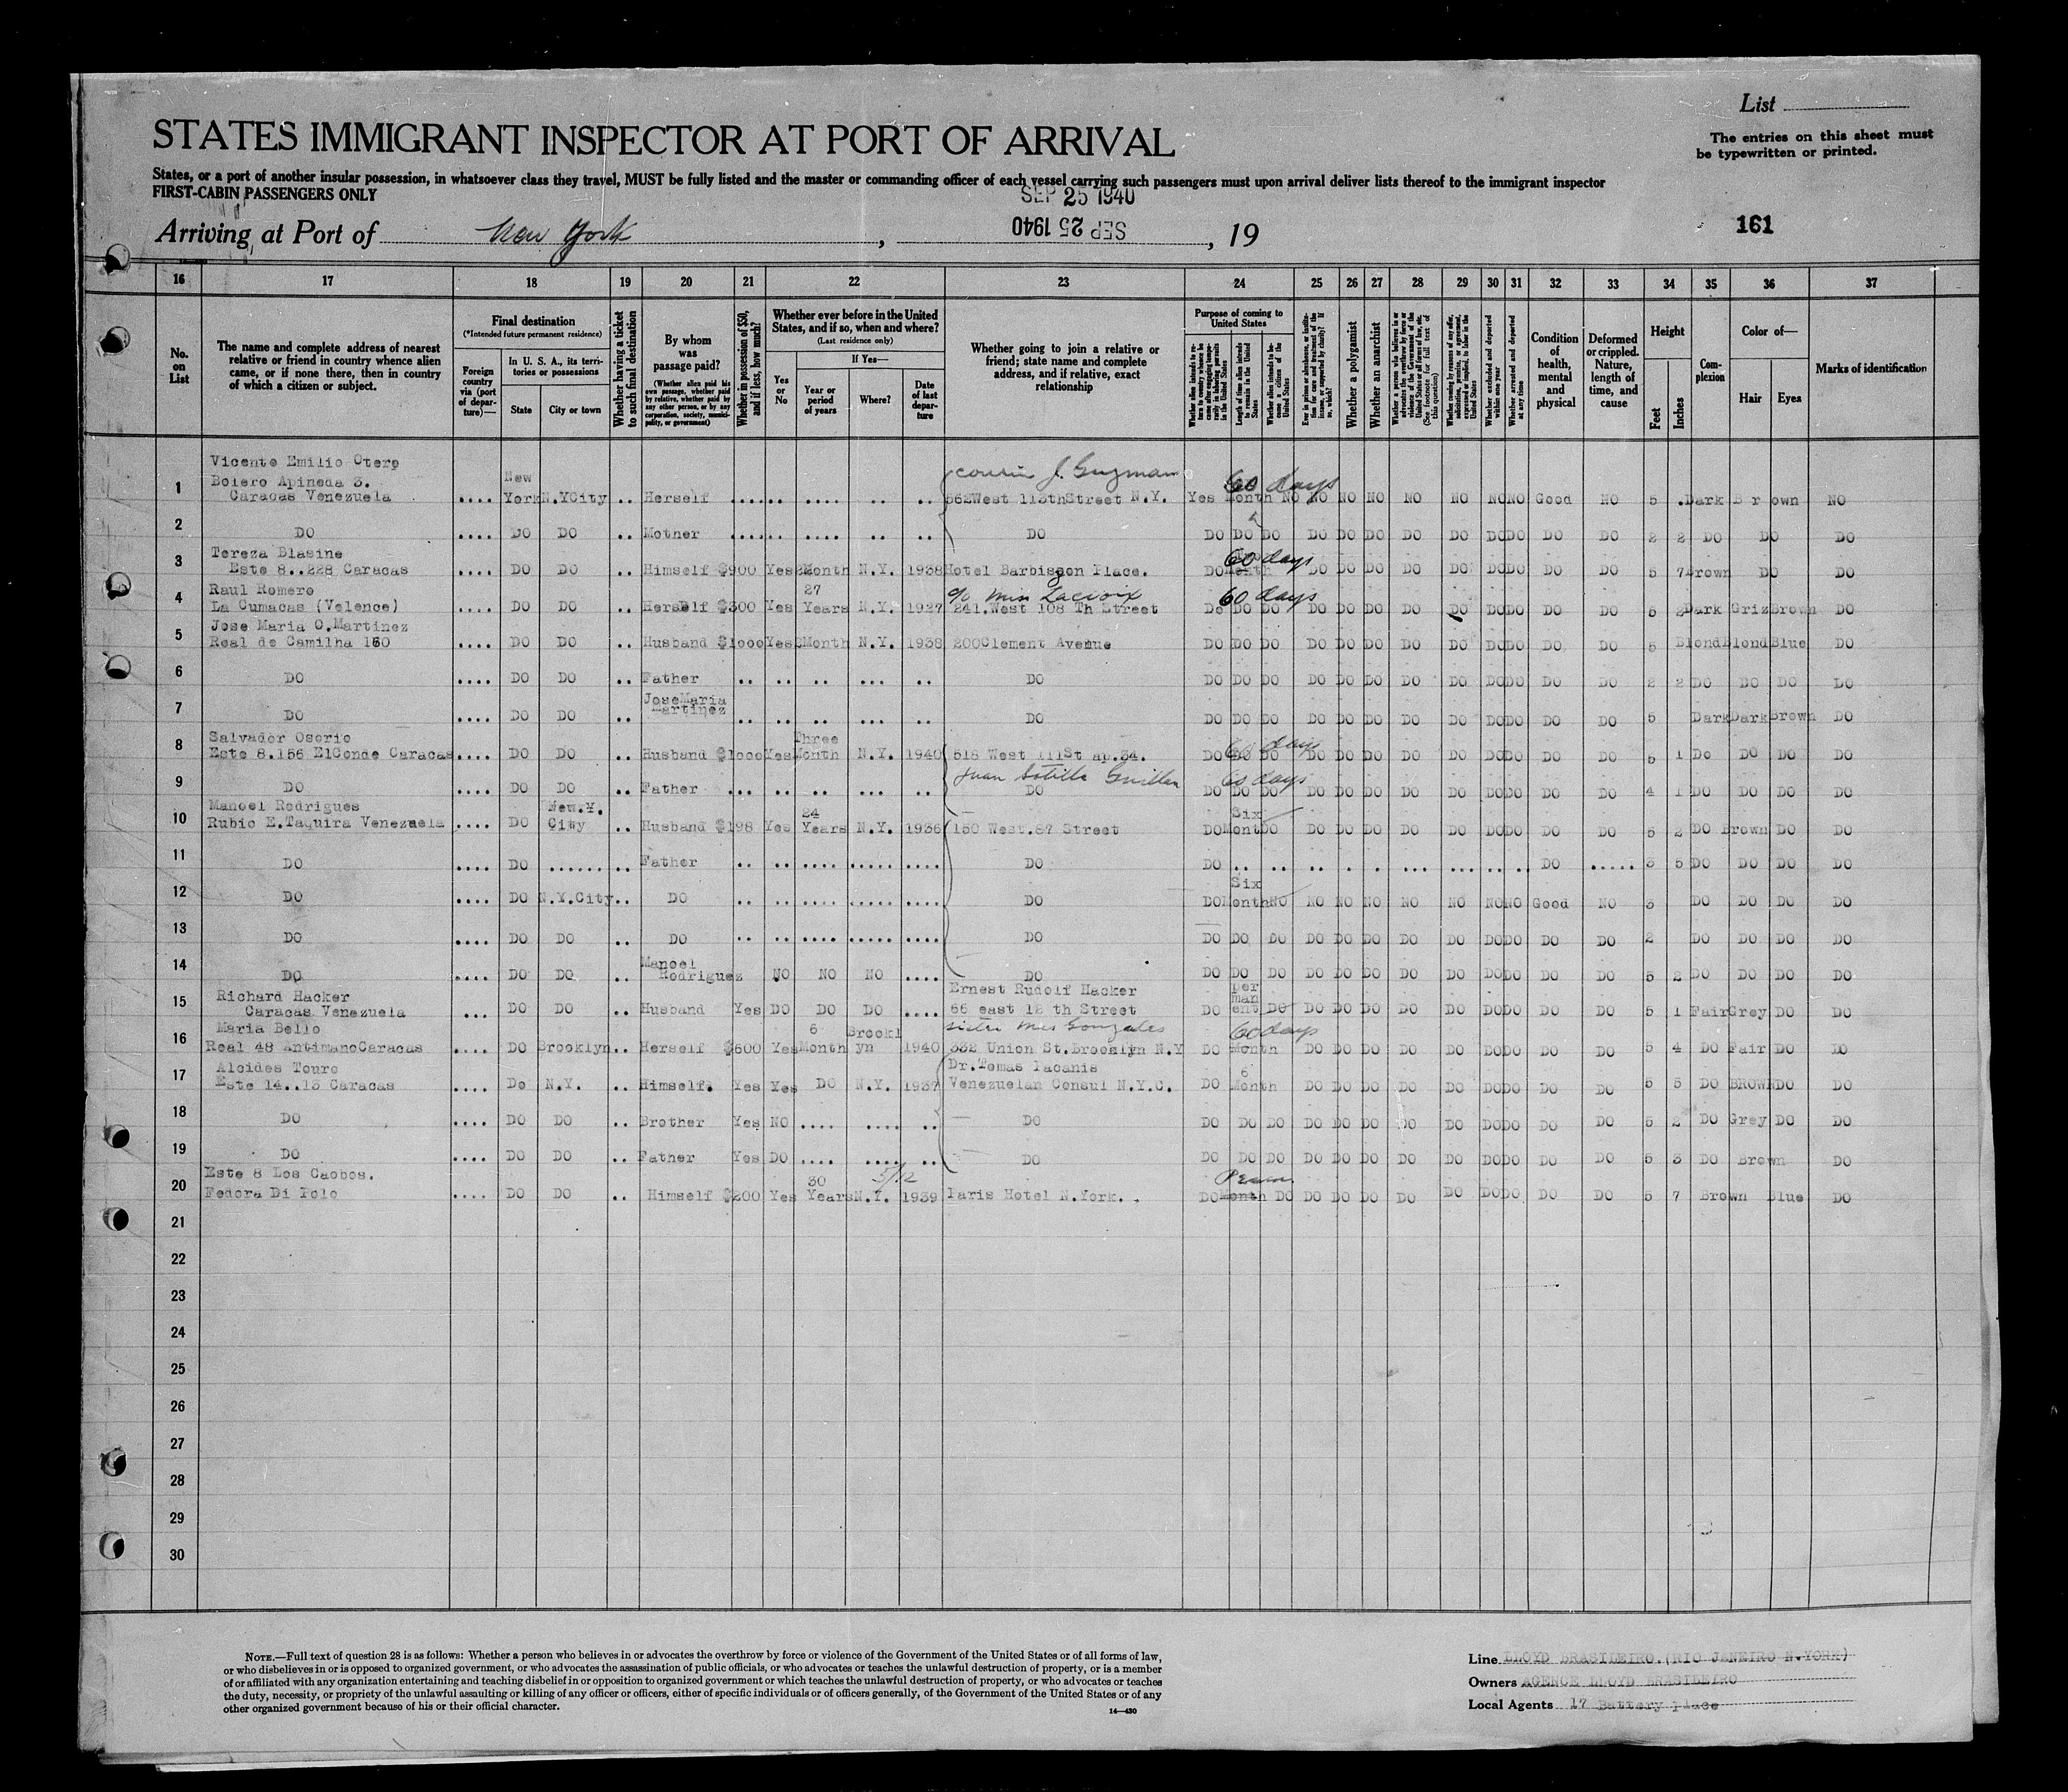 List
The entries on this sheet must
be typewritten or printed.
STATES IMMIGRANT INSPECTOR AT PORT OF ARRIVAL
States, or a port of another insular possession, in whatsoever class they travel, MUST be fully listed and the master or commanding officer of each vessel carrying such passengers must upon arrival deliver lists thereof to the immigrant inspector
FIRST-CABIN PASSENGERS ONLY
SEP 25 1940
161
Arriving at Port of New York, SEP 25 1940, 19
16 17 18 19 20 21 22 23 24 25 26 27 28 29 30 31 32 33 34 35 36 37
No. on List
The name and complete address of nearest relative or friend in country whence alien came, or if none there, then in country of which a citizen or subject.
Final destination
(*Intended future permanent residence)
Foreign country via (port of departure)—
In U. S. A., its territories or possessions
State
City or town
Whether having a ticket to such final destination
By whom was passage paid?
(Whether alien paid his own passage, whether paid by relative, whether paid by any other person, or by any corporation, society, municipality, or government)
Whether in possession of $50, and if less, how much?
Whether ever before in the United States, and if so, when and where?
(Last residence only)
Yes or No
If Yes—
Year or period of years
Where?
Date of last departure
Whether going to join a relative or friend; state name and complete address, and if relative, exact relationship
Purpose of coming to United States
Length of time alien intends to remain in the United States
Whether alien intends to become a citizen of the United States
Whether a polygamist
Whether an anarchist
Whether excluded and deported within one year
Whether arrested and deported at any time
Condition of health, mental and physical
Deformed or crippled. Nature, length of time, and cause
Height
Feet
Inches
Complexion
Color of—
Hair
Eyes
Marks of identification
Vicente Emilio Otero
cousin J. Guzman
1 Bolero Apineda 3. New 60 days
Caracas Venezuela .... York N.YCity .. Herself 562West 113thStreet N.Y. Yes Month NO NO NO NO NO NO NO NO Good NO 5 Dark Brown NO
2 DO .... DO DO .. Mother DO DO DO DO DO DO DO DO DO DO DO DO DO 2 2 DO DO DO
Tereza Blasine 60 days
3 Este 8..228 Caracas .... DO DO .. Himself $900 Yes Month N.Y. 1938 Hotel Barbiszon Place. DO Month DO DO DO DO DO DO DO DO DO 5 7 Brown DO DO
Raul Romero 27 c/o Miss Lacroix 60 days
4 La Cumacas (Valence) .... DO DO .. Herself $300 Yes Years N.Y. 1927 241.West 108 Th Street DO DO DO DO DO DO DO DO DO DO DO DO 5 2 Dark Griz Brown DO
Jose Maria O.Martinez
5 Real de Camilha 160 .... DO DO .. Husband $1000 Yes Month N.Y. 1938 200Clement Avenue DO DO DO DO DO DO DO DO DO DO DO DO 5 Blond Blond Blue DO
6 DO .... DO DO .. Father .. .. .. ... .. DO DO DO DO DO DO DO DO DO DO DO DO DO 2 2 DO DO DO DO
JoseMaria
7 DO .... DO DO .. Martinez .. .. .. ... .. DO DO DO DO DO DO DO DO DO DO DO DO DO 5 Dark Dark Brown DO
Salvador Osorio Three 60 days
8 Este 8.156 ElConde Caracas .... DO DO .. Husband $1000 Yes Month N.Y. 1940 518 West 111St ap.34. DO DO DO DO DO DO DO DO DO DO DO 5 1 Do DO DO DO
Juan Sotillo Guillen 60 days
9 DO .... DO DO .. Father ... .. .. ... .. DO DO DO DO DO DO DO DO DO DO DO DO DO 4 1 DO DO DO DO
Manoel Rodrigues New.Y. 24 Six
10 Rubio E.Taquira Venezuela .... DO City .. Husband $198 Yes Years N.Y. 1936 150 West.87 Street DO Month DO DO DO DO DO DO DO DO DO DO 5 2 DO Brown DO DO
11 DO .... DO ...... .. Father .. .. .... ..... .... DO DO DO ..... 3 5 DO DO DO DO
Six
12 DO .... DO N.Y.City .. DO .. .. .... ..... .... DO DO Month NO NO NO NO NO NO NO NO Good NO 3 DO DO DO DO
13 DO .... DO DO .. DO .. .. .... ..... .... DO DO DO DO DO DO DO DO DO DO DO DO DO 2 DO DO DO DO
Manoel
14 DO .... DO DO .. Rodriguez NO NO NO .... DO DO DO DO DO DO DO DO DO DO DO DO DO 5 2 DO DO DO DO
Richard Hacker Ernest Rudolf Hacker per man
15 Caracas Venezuela ... DO DO .. Husband Yes DO DO DO .... 66 east 12 th Street DO ent DO DO DO DO DO DO DO DO DO DO 5 1 Fair Grey DO DO
Maria Bello 6 Brookl sister Mrs Gonzales 60 days
16 Real 48 AntimanoCaracas .... DO Brooklyn .. Herself $600 Yes Month yn 1940 332 Union St.Brooklyn N.Y DO Month DO DO DO DO DO DO DO DO DO 5 4 DO Fair DO DO
Alcides Touro Dr.Tomas Pacanis 6
17 Este 14..13 Caracas .... Do N.Y. .. Himself. Yes Yes DO N.Y. 1937 Venezuelan Consul N.Y.C. DO Month DO DO DO DO DO DO DO DO DO 5 5 DO BROWN DO DO
18 DO .... DO DO .. Brother Yes NO .... .... .. DO DO DO DO DO DO DO DO DO DO DO DO DO 5 2 DO Grey DO DO
19 DO .... DO DO .. Father Yes DO .... .... .. DO DO DO DO DO DO DO DO DO DO DO DO DO 5 3 DO Brown DO
Este 8 Los Caobos. 30 5/12 Perm.
20 Fedora Di Polo .... DO DO .. Himself $200 Yes Years N.Y. 1939 Paris Hotel N.York. . DO Month DO DO DO DO DO DO DO DO DO DO 5 7 Brown Blue DO
21
22
23
24
25
26
27
28
29
30
NOTE.—Full text of question 28 is as follows: Whether a person who believes in or advocates the overthrow by force or violence of the Government of the United States or of all forms of law,
or who disbelieves in or is opposed to organized government, or who advocates the assassination of public officials, or who advocates or teaches the unlawful destruction of property, or is a member
of or affiliated with any organization entertaining and teaching disbelief in or opposition to organized government or which teaches the unlawful destruction of property, or who advocates or teaches
the duty, necessity, or propriety of the unlawful assaulting or killing of any officer or officers, either of specific individuals or of officers generally, of the Government of the United States or of any
other organized government because of his or their official character.
14—430
Line LLOYD BRASILEIRO.(RIO JANEIRO N.YORK)
Owners AGENCE LLOYD BRASILEIRO
Local Agents 17 Battery place